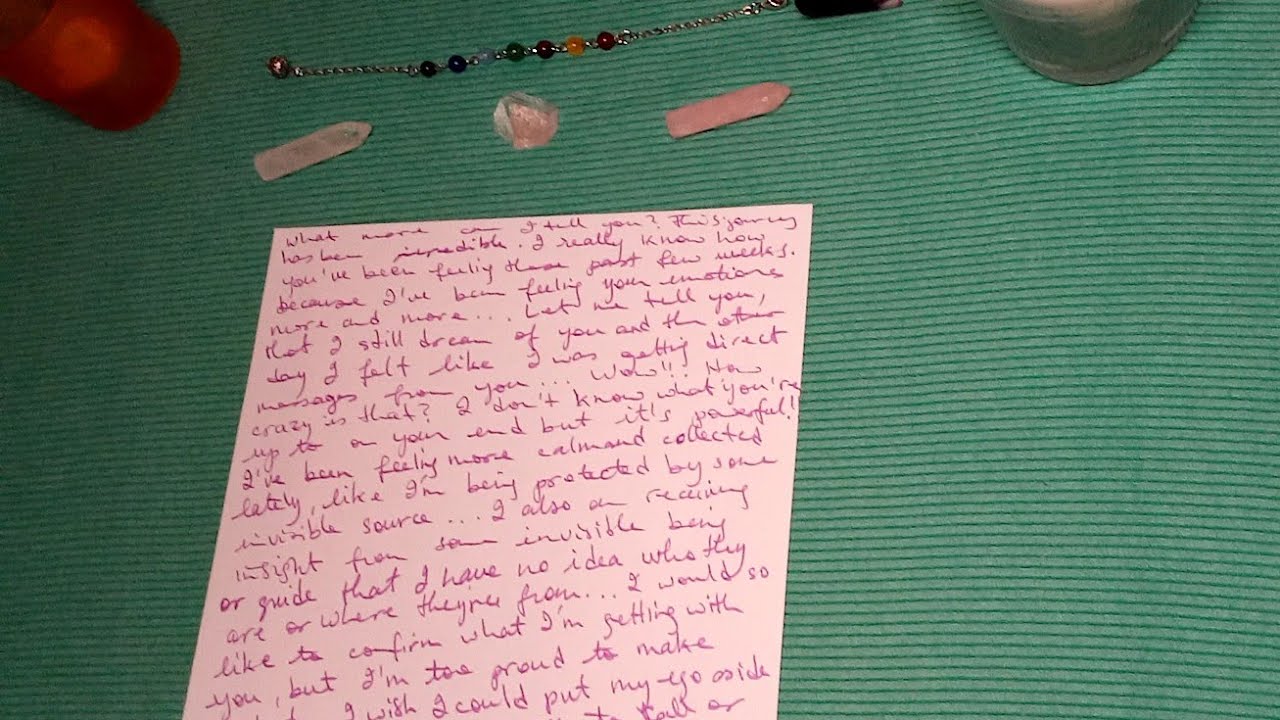 What more can I tell you? This journey
has been incredible. I really know how
you've been feeling these past few weeks.
because I've been feeling your emotions
more and more... Let me tell you,
that I still dream of you and the other
day I felt like I was getting direct
messages from you... Wow!! How
crazy is that? I don't know what you're
up to on your end but it's powerful!
I've been feeling more calm and collected
lately, like I'm being protected by some
invisible source... I also am receiving
insight from some invisible being
or guide that I have no idea who they
are or where they're from... I would so
like to confirm what I'm getting with
you, but I'm too proud to make
I wish I could put my ego aside
to talk or